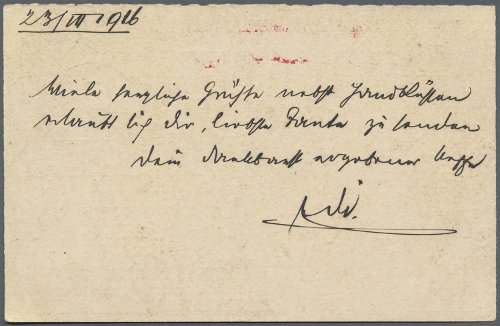 23/III 1916
Viele herzliche Grüße nebst Handküssen
erlaubt sich Dir, liebste Tante zu senden
Dein dankbarst ergebener Neffe